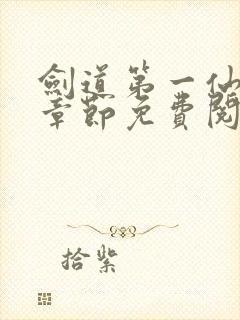 劍道第一仙
章節免費閱
拾紫